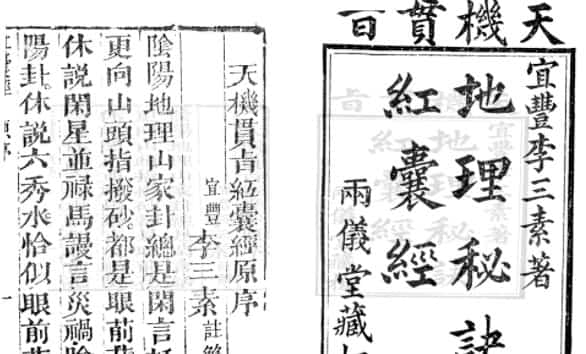 天機貫旨
宜豐李三素著
地理秘訣
紅囊經
兩儀堂藏
天機貫旨紅囊經原序
宜豐李三素註
陰陽地理山家卦總是閑言
更向山頭指撥砂都是眼前
休説閑星並祿馬謾言災禍
陽卦休説六秀水恰似眼前